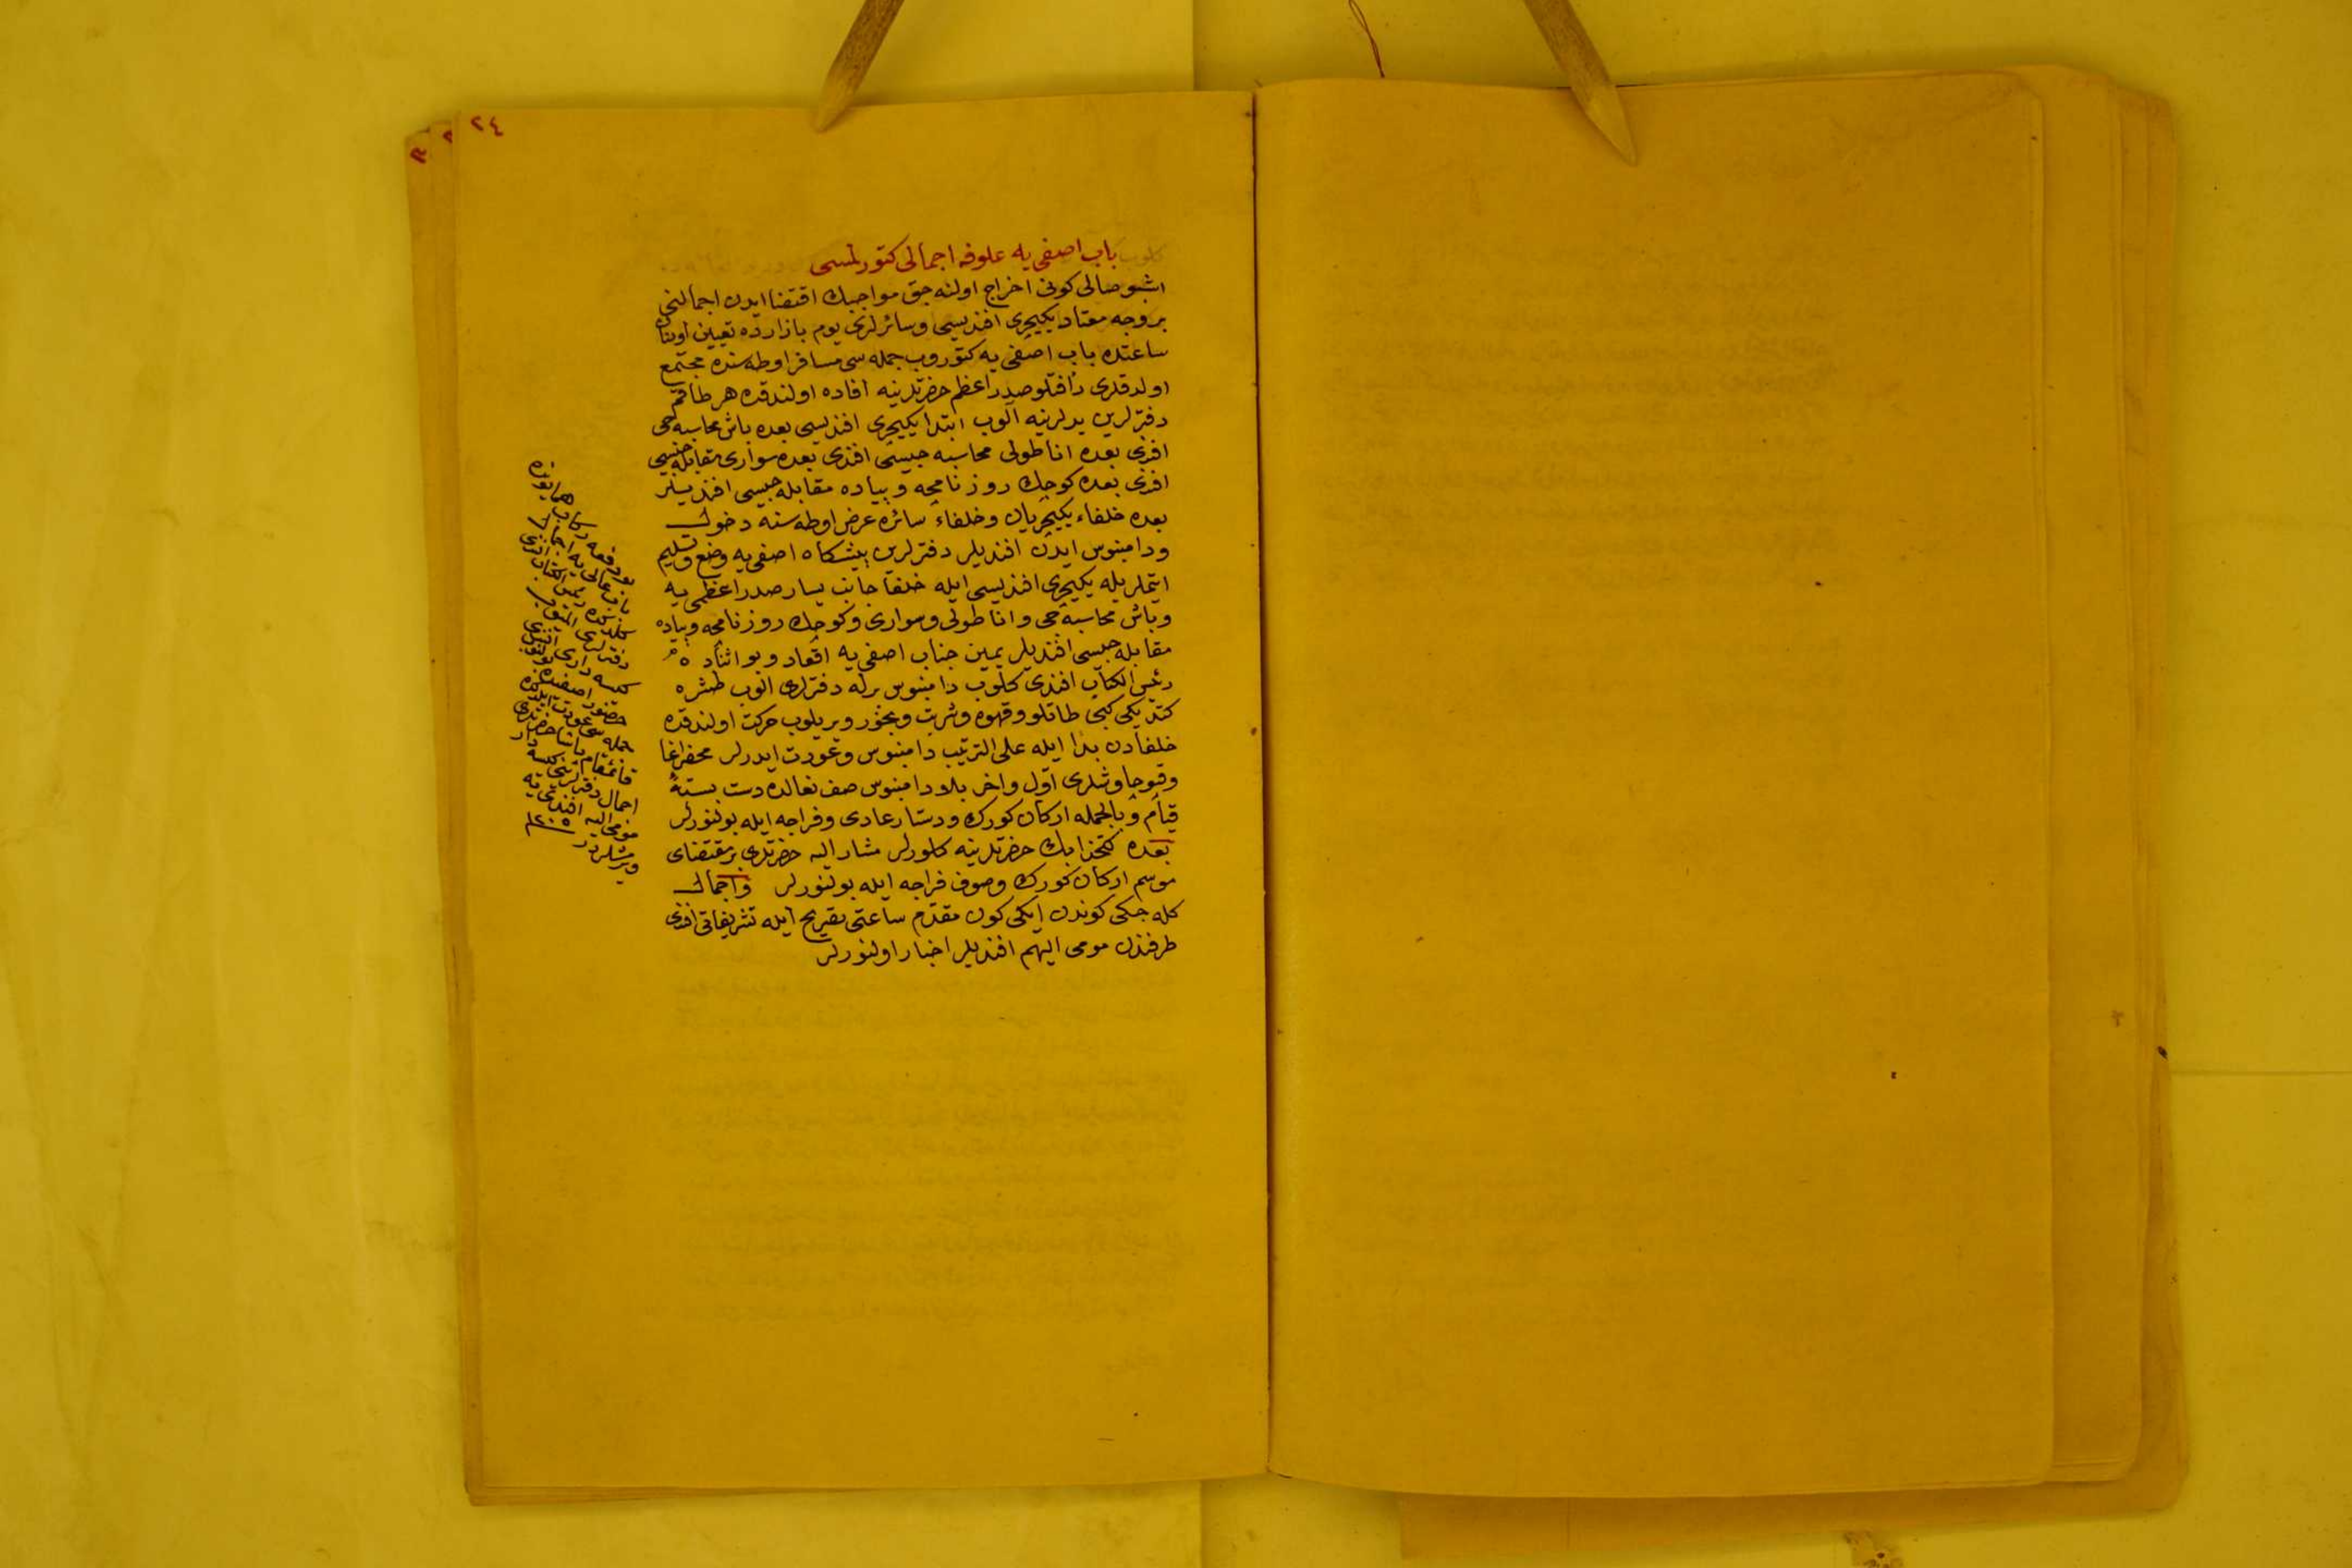 ٢٤
باب اصفی یه علوفه اجمالی کتورلمسی
اشبو صالی کونی اخراج اولنه جق مواجبك اقتضا ایدن اجمالنی
بروجه معتاد یکیچری افندیسی وسائرلری یوم بازارده تعیین اولنان
ساعتده باب اصفی یه کتوروب جمله سی مسافر اوطه سنده مجتمع
اولدقلری رأفتلو صدر اعظم حضرتلرینه افاده اولندقده هر
دفترلرین یدلرینه آلوب ابتدا یکیچری افندیسی بعده باش محاسبه جی
افندی بعده اناطولی محاسبه جیسی افندی بعده سواری مقابله جیسی
افندی بعده کوچك روزنامچه وپیاده مقابله جیسی افندیلر
بعده خلفاء یکیچریان وخلفاء سائره عرض اوطه سنه دخول
ودامنبوس ایدن افندیلر دفترلرین پیشکاه اصفی یه وضع وتسلیم
ایتملریله یکیچری افندیسی ایله خلفا جانب یسار صدر اعظمی یه
وباش محاسبه جی واناطولی وسواری وکوچك روزنامچه وپیاده
مقابله جیسی افندیلر یمین جناب اصفی یه اقعاد وبو اثناده
رئیس الکتاب افندی کلوب دامنبوس برله دفترلری الوب طشره
کتدیکی کبی طاتلو وقهوه وشربت وبخور ویریلوب حرکت اولندقده
خلفادن بدأ ایله علی الترتیب دامنبوس وعودت ایدرلر محضر اغا
وقپوچاوشلری اول واخر بلا دامنبوس صف نعالده دست بسته
قیام وبالجمله ارکان کورك ودستار عادی وفراجه ایله بولنورلر
بعده کتخدا بك حضرتلرینه کلورلر مشار الیه حضرتلری بر مقتضای
موسم ارکان کورك وصوف فراجه ایله بولنورلر واجمال
کله جکی کوندن ایکی کون مقدم ساعتی تصریح ایله تشریفاتی افندی
طرفندن مومی الیهم افندیلر اخبار اولنورلر
بو دفعه رکاب همایونده
باب عالی یه اجمال
کلدکده رئیس الکتاب افندی
دفترلری الیوب
کیسه داری افندی
حضور اصفیده بولنوب
جمله سی عودت ایلدکده
قائمقام پاشا حضرتلری
اجمال دفترلرینی کیسه دار
مومی الیه افندی یه
ویرمشلردر ١٢٠٥